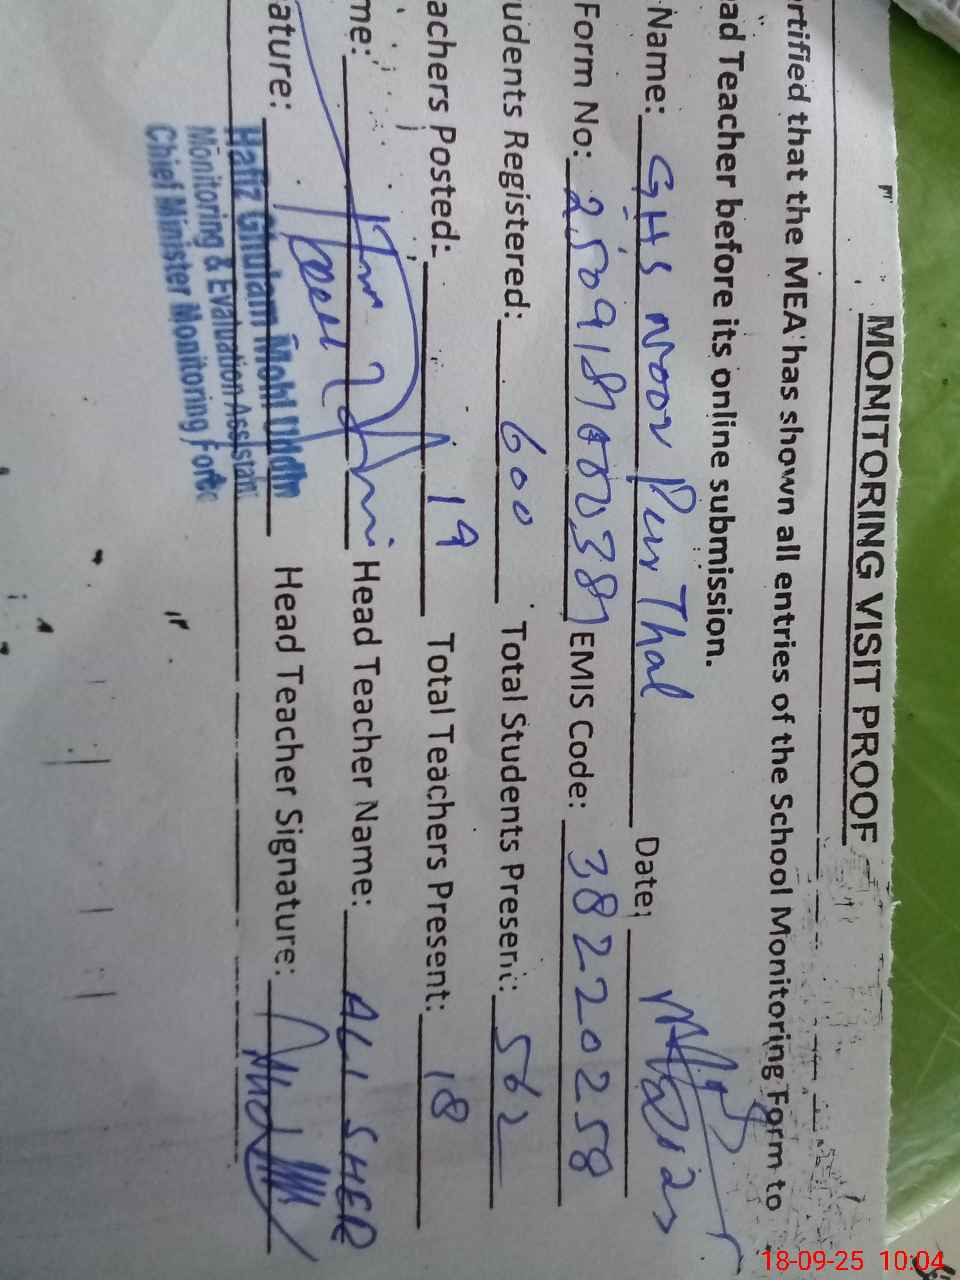 MONITORING VISIT PROOF
ertified that the MEA has shown all entries of the School Monitoring Form to
ad Teacher before its online submission.
Name: GHS Noor Pur Thal Date:
Form No: EMIS Code: 38220258
udents Registered: 600 Total Students Present: 562
achers Posted: 19 Total Teachers Present: 18
me: Head Teacher Name: ALI SHER
ature: Head Teacher Signature:
Hafiz Ghulam Mohi Uddin
Monitoring & Evaluation Assistant
Chief Minister Monitoring Force
18-09-25 10:04